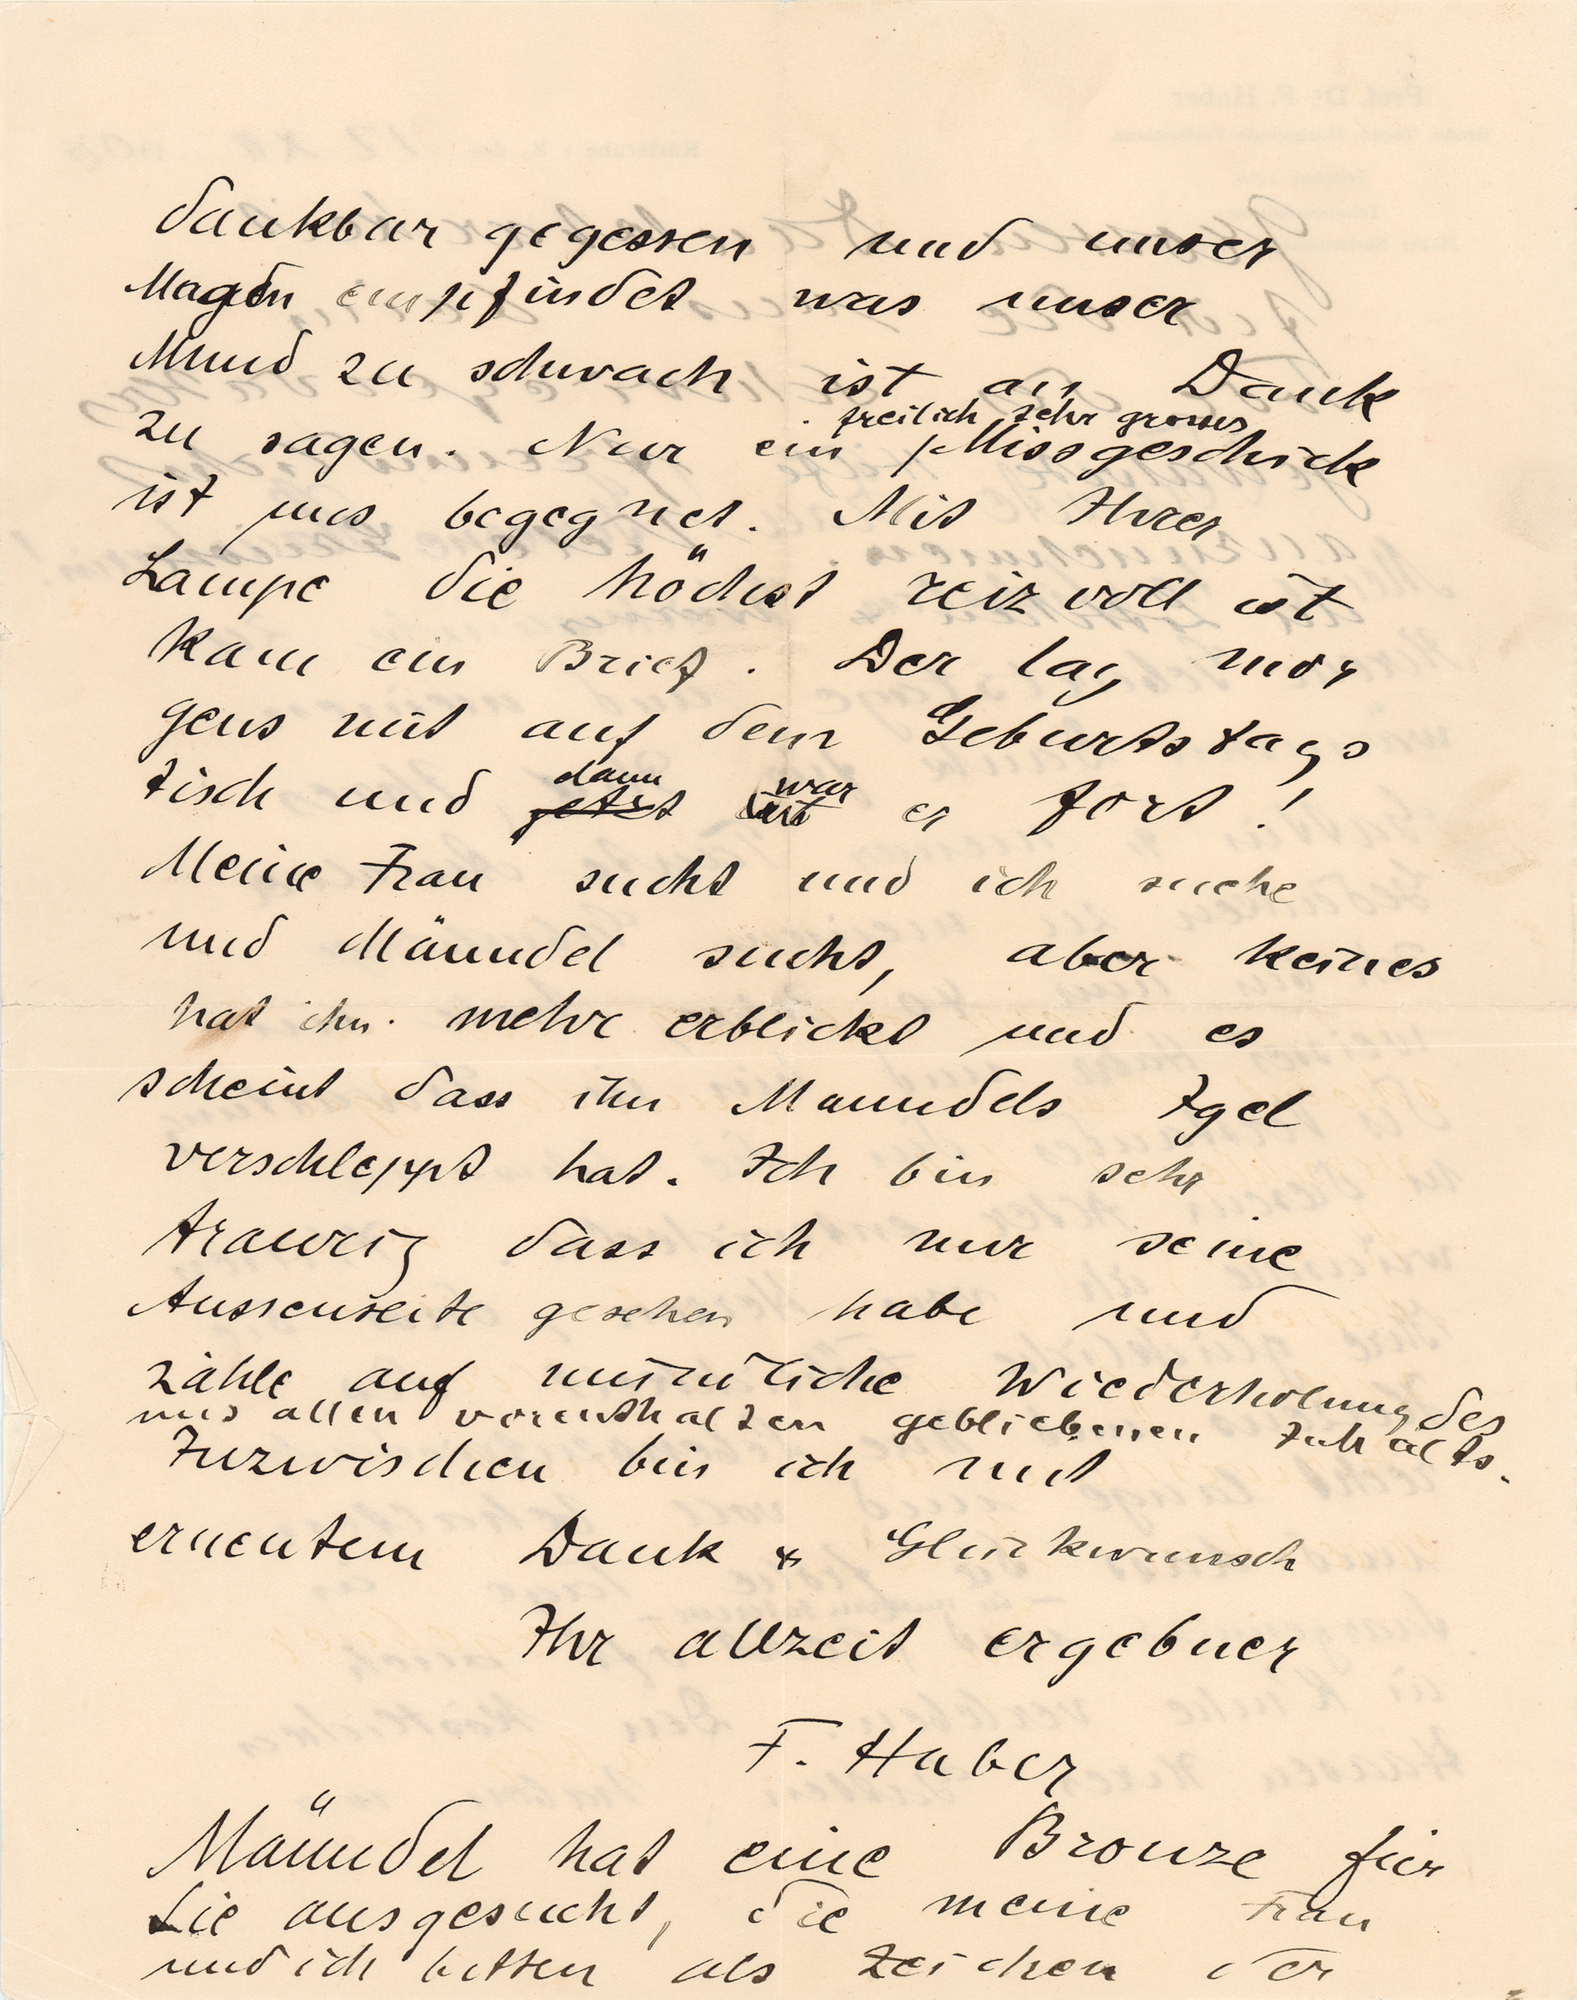 dankbar gegessen und unser
Magen empfindet was unser
Mund zu schwach ist an Dank
freilich sehr grosses
zu sagen. Nur ein Missgeschick
ist uns begegnet. Mit Ihrer
Lampe die höchst reizvoll ist
kam ein Brief. Der lag mor
gens mit auf dem Geburtstags
dann war
tisch und jetzt ist er fort!
Meine Frau sucht und ich suche
und Männdel sucht, aber keines
hat ihn mehr erblickt und es
scheint dass ihn Manndels Igel
verschleppt hat. Ich bin sehr
traurig dass ich nur seine
Aussenseite gesehen habe und
zähle auf mündliche Wiederholung des
uns allen vorenthalten gebliebenen Inhalts.
Inzwischen bin ich mit
erneutem Dank & Glückwunsch
Ihr allzeit ergebner
F. Haber
Männdel hat eine Bronze für
Sie ausgesucht, die meine Frau
und ich bitten als Zeichen der